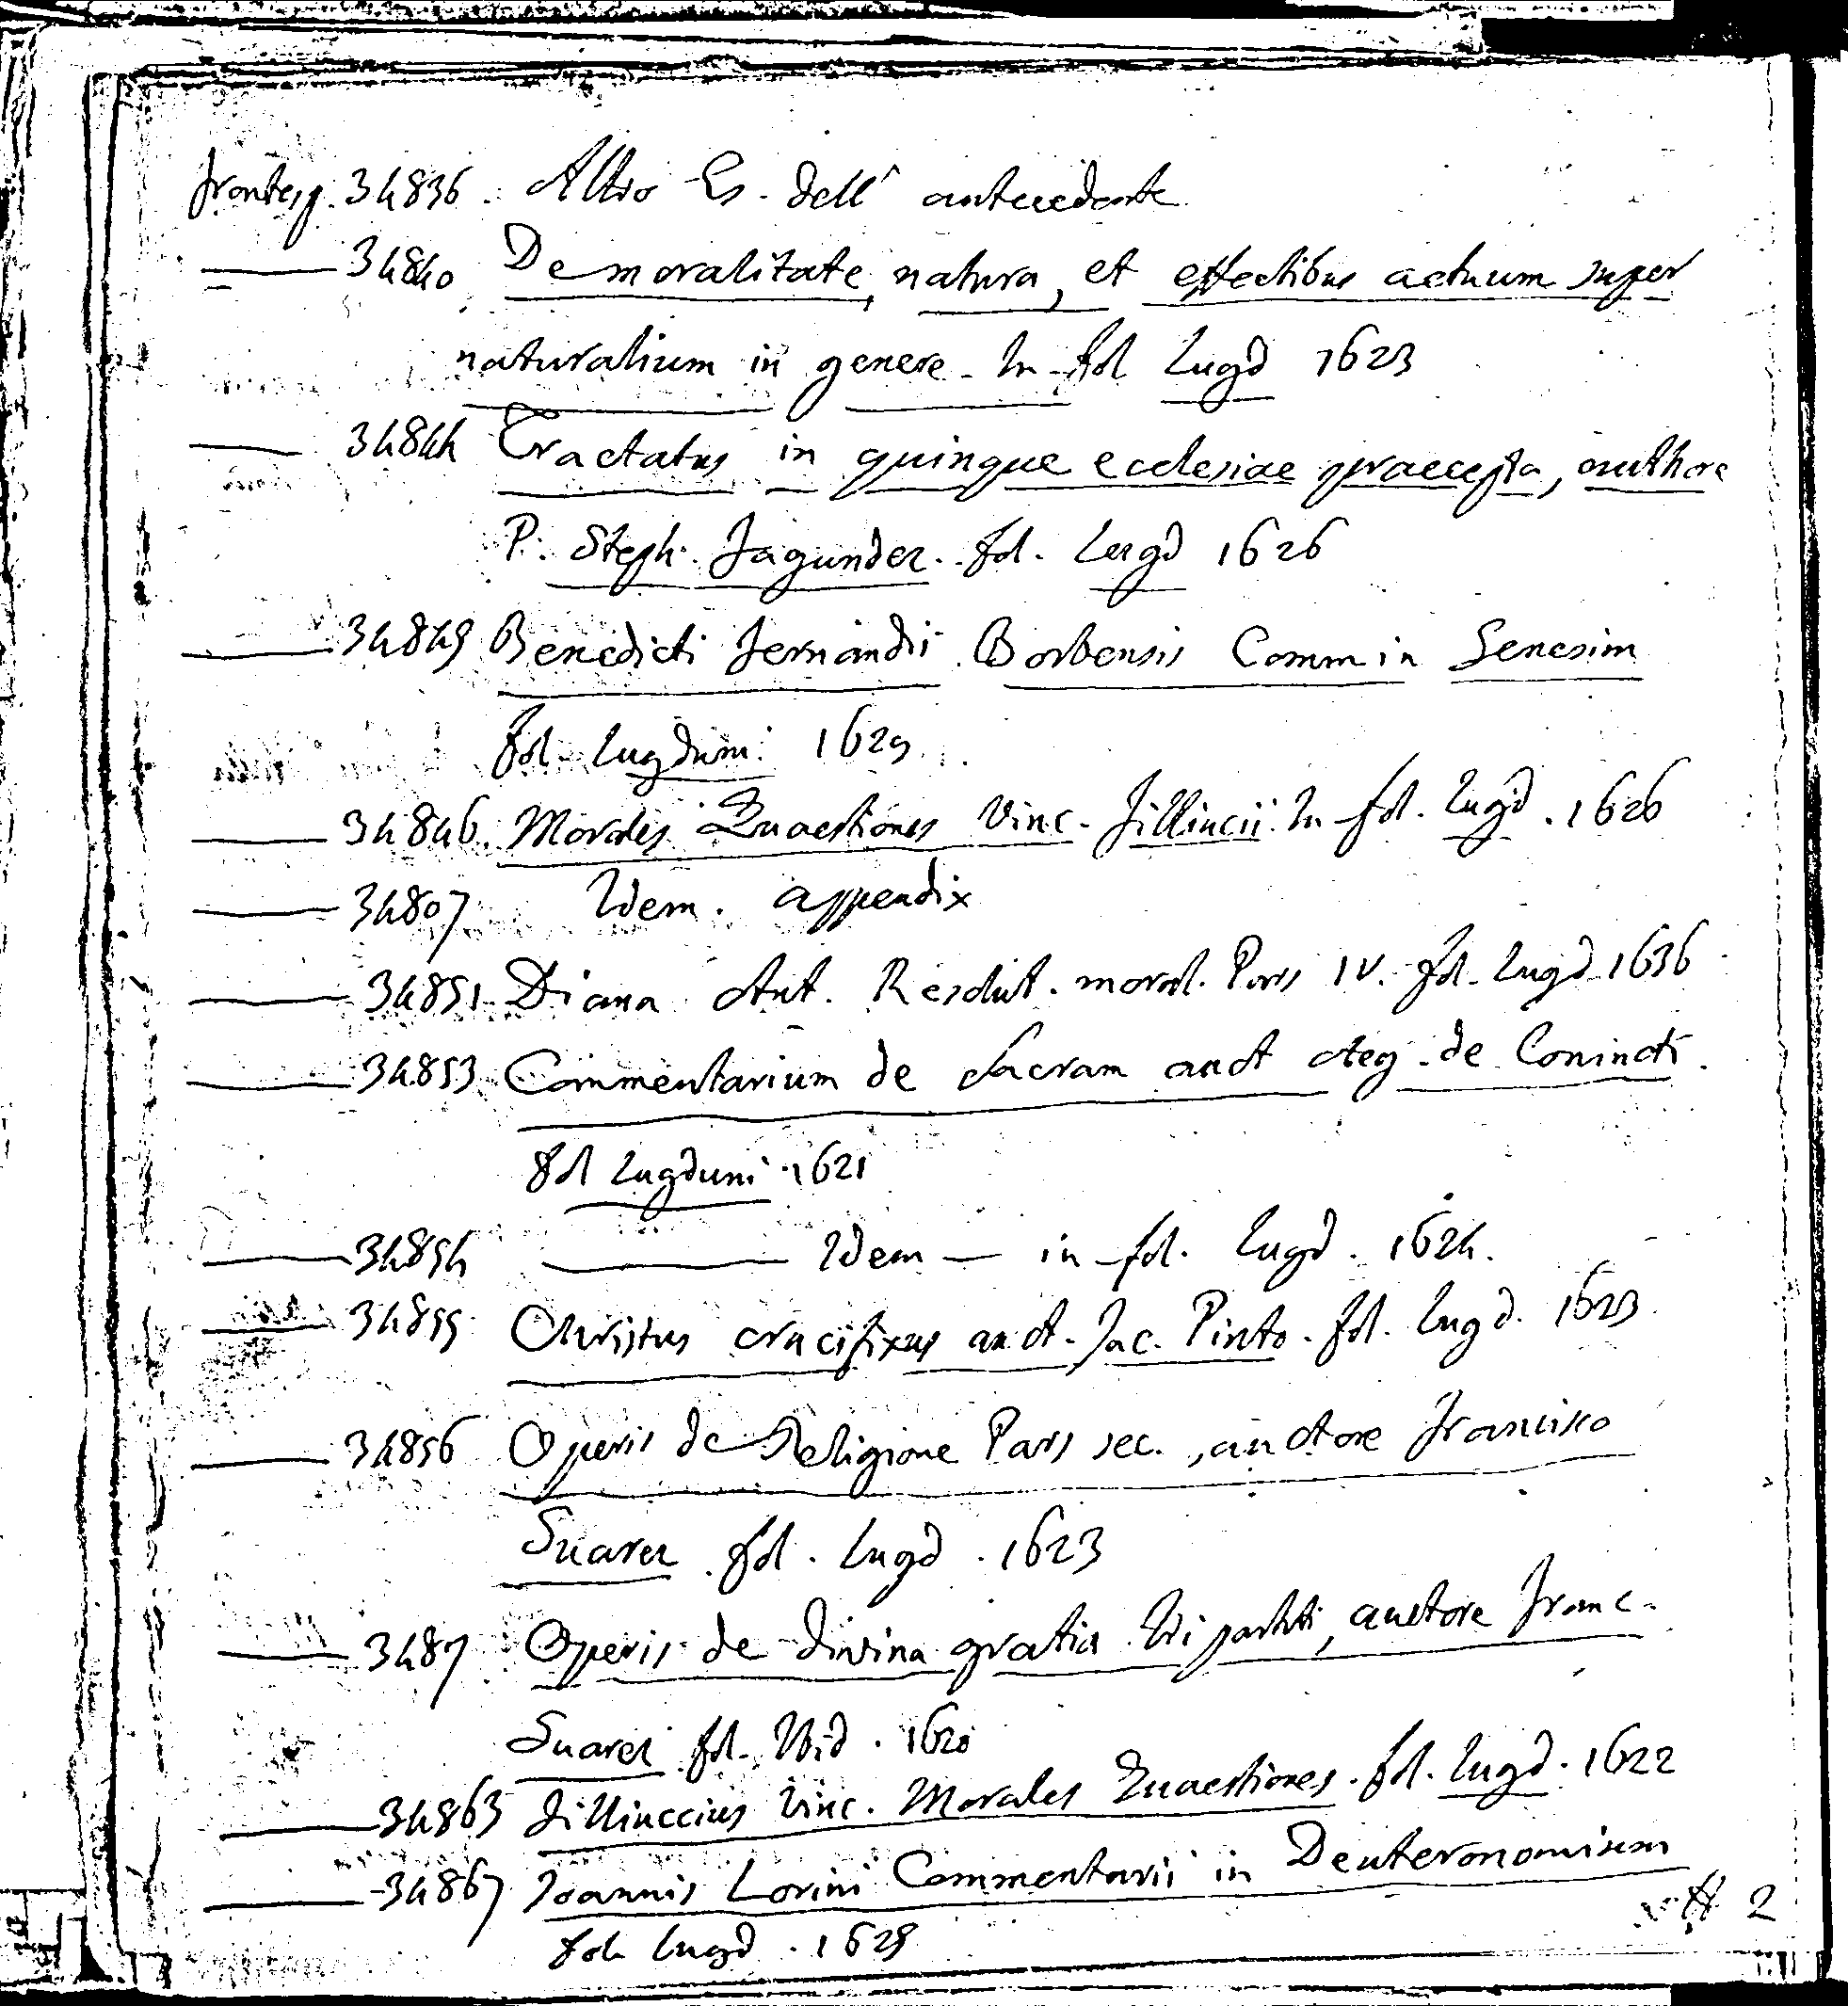 frontesp. 34836. Altro Es. dell' antecedente
34840 De moralitate, natura, et effectibus actuum super
naturalium in genere. In fol Lugd 1623
34844 Tractatus in quinque ecclesiae praecepta, authore
P. Steph. Fagundez. fol. Lugd 1626
34849 Benedicti Fernandii Borbensis Comm in Genesim
fol. Lugduni 1629
34846. Morales Quaestiones Vinc. Fillincii. In fol. Lugd. 1626
34807 Idem. appendix
34851 Diana Ant. Resolut. moral. Pars IV. fol. Lugd 1636
34853 Commentarium de Sacram auct Aeg. de Coninch.
fol Lugduni 1621
34854 Idem — in fol. Lugd. 1624.
34855 Christus crucifixus auct. Jac. Pinto. fol. Lugd. 1623
34856 Operis de Religione Pars sec., auctore Francisco
Suarez fol. Lugd. 1623
3487 Operis de divina gratia tripartiti, auctore Franc.
Suarez fol. Ibid. 1620
34863 Filliuccius Vinc. Morales Quaestiones. fol. Lugd. 1622
34867 Joannis Lorini Commentarii in Deuteronomium
fol. Lugd. 1629
2